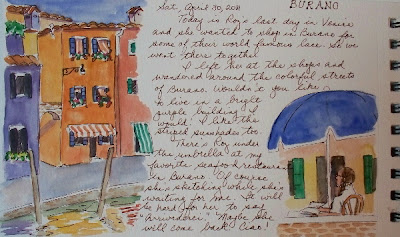 Sat, April 30, 2011
BURANO
Today is Roy's last day in Venice
and she wanted to shop in Burano for
some of their world famous lace. So we
went there together.
I left her at the shops and
wandered around the colorful streets
of Burano. Wouldn't you like
to live in a bright
purple building? I
would. I like the
striped sunshades too.
There's Roy under
the umbrella at my
favorite seafood restaurant
in Burano. Of course
she's sketching while she's
waiting for me. It will
be hard for her to say
"Arrivederci." Maybe she
will come back. Ciao!